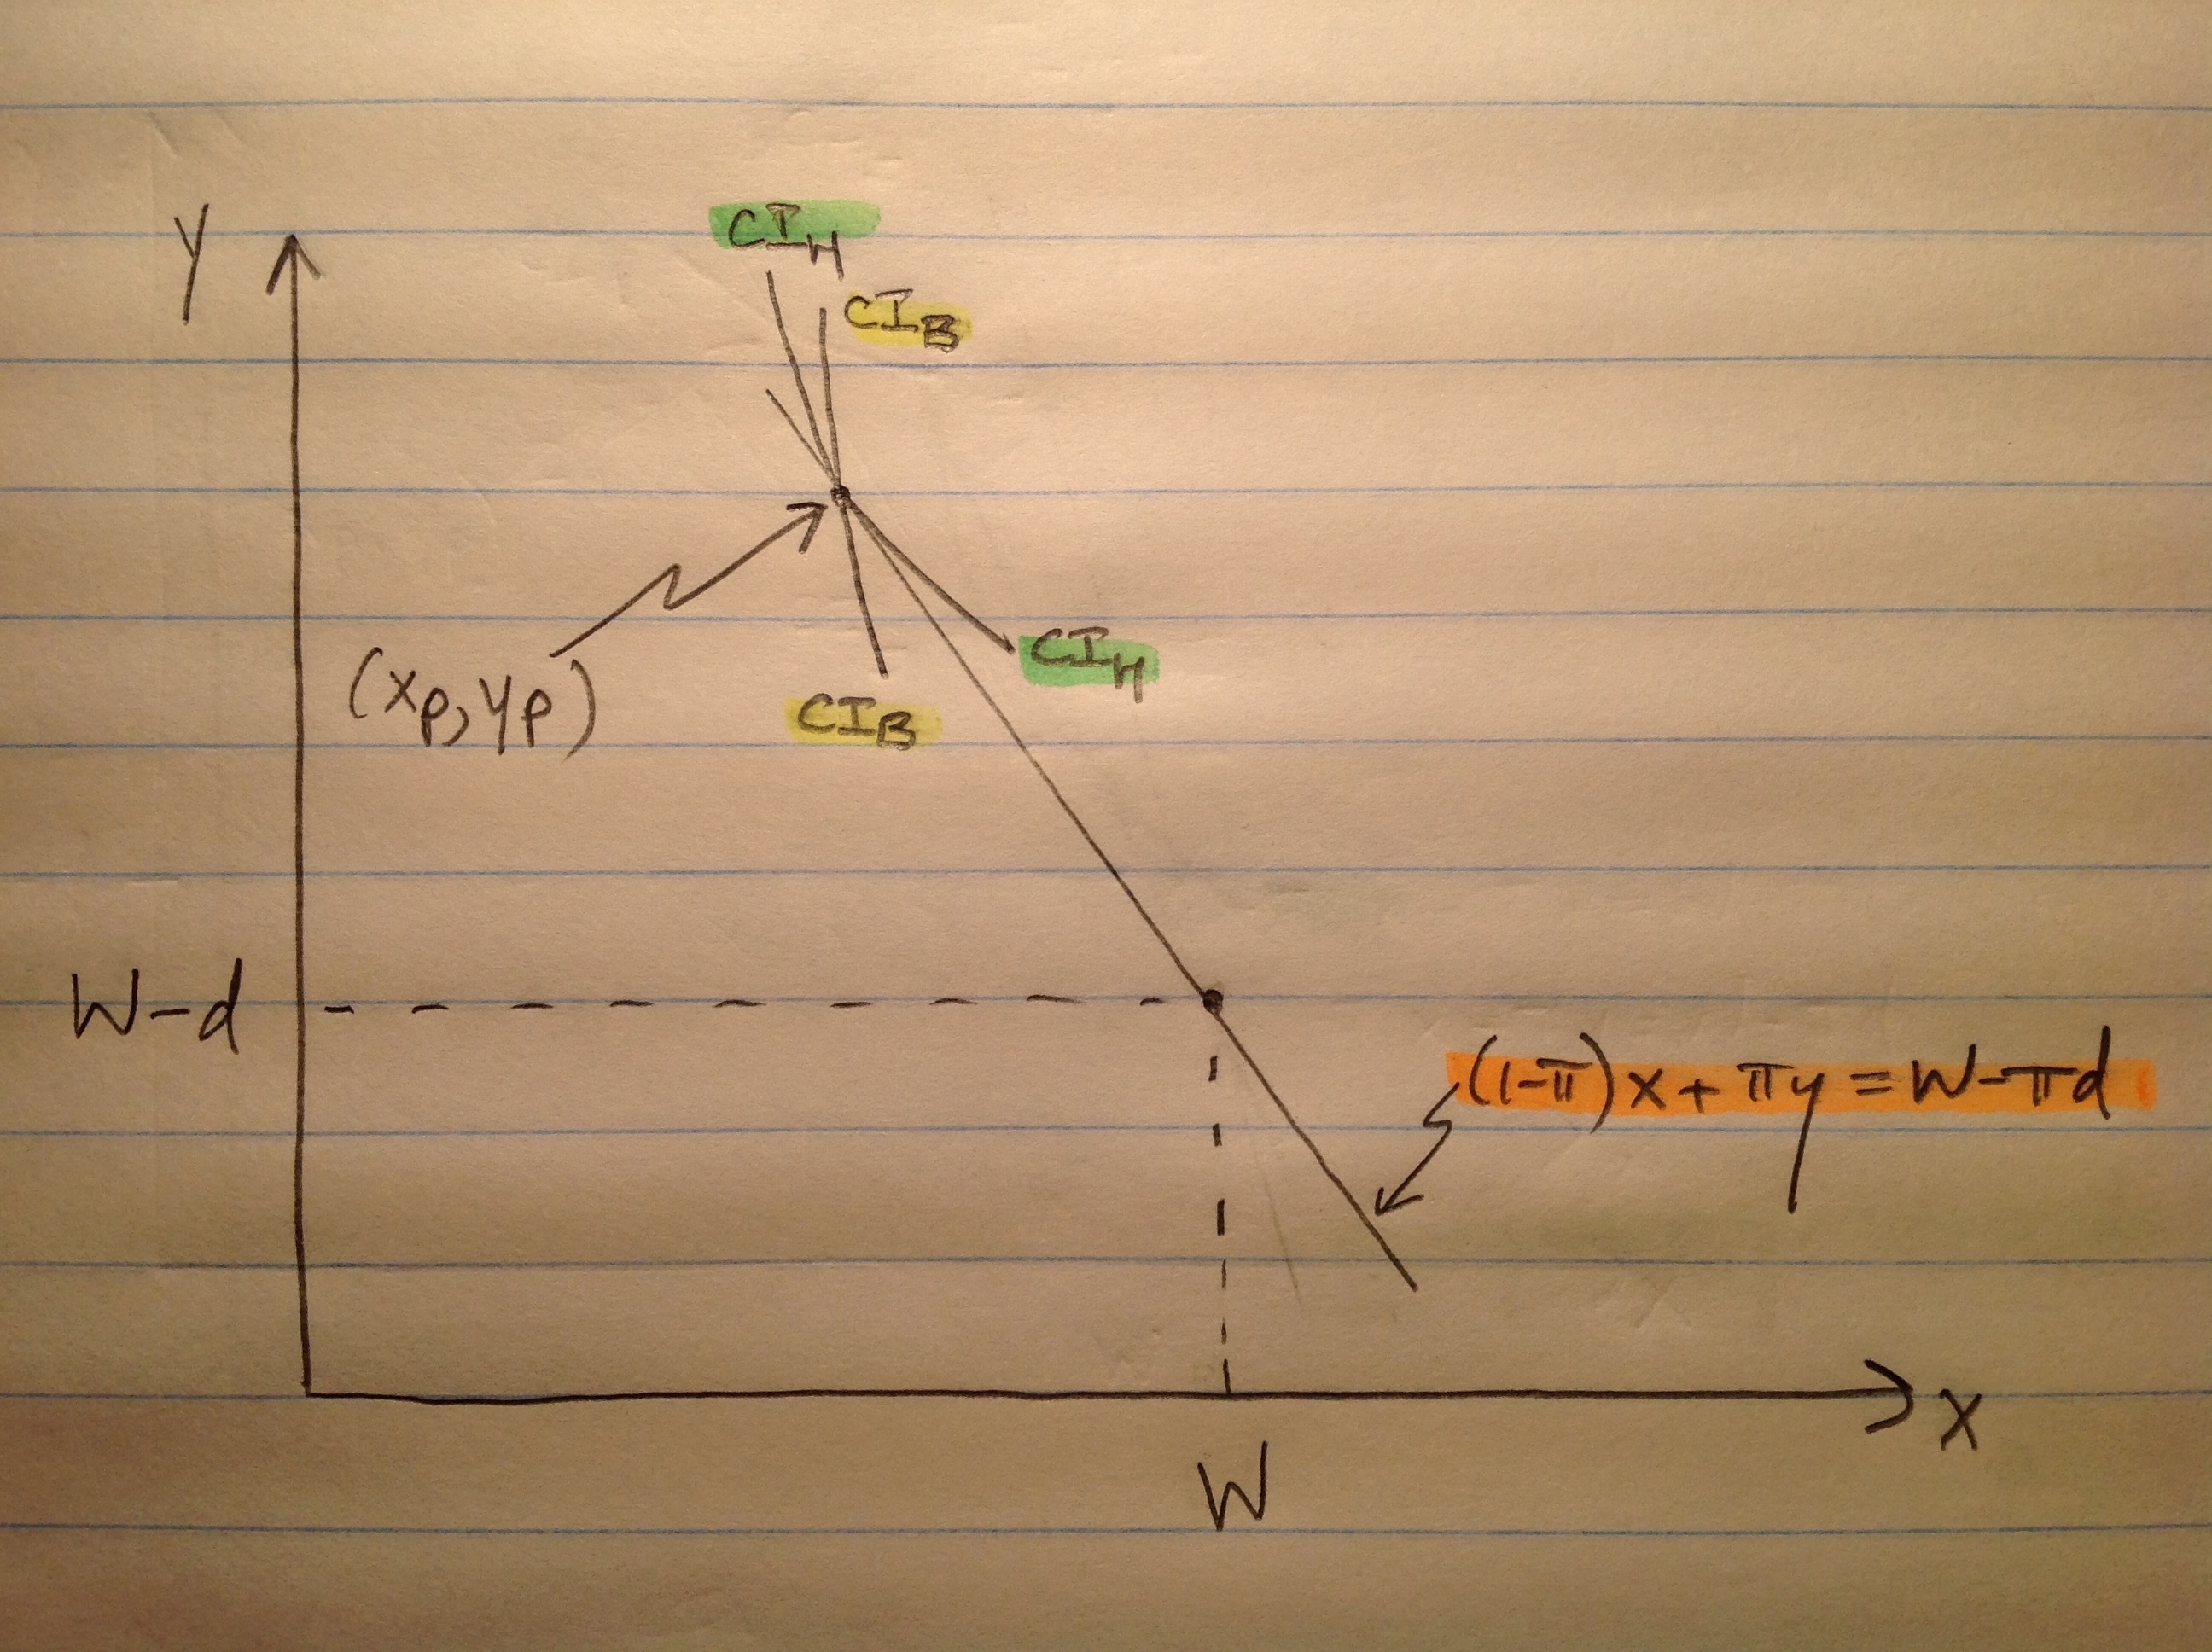 y
CI_H
CI_B
(x_p, y_p)
CI_H
CI_B
W-d
(1-π)x + πy = W-πd
x
W